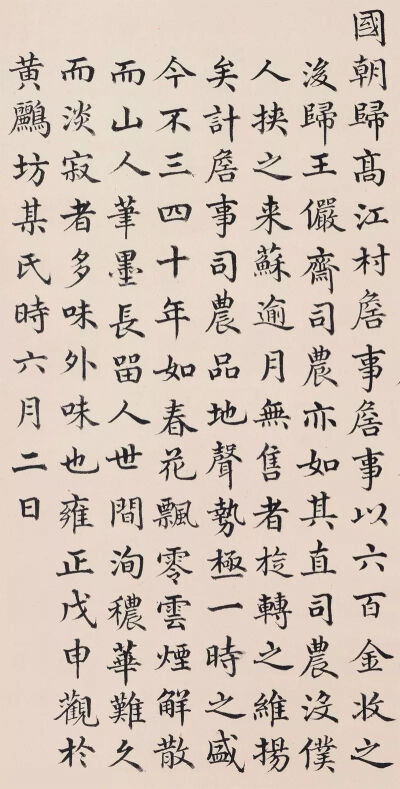 國朝歸高江村詹事詹事以六百金收之
後歸王儼齋司農亦如其直司農沒僕
人挾之来蘇逾月無售者旋轉之維揚
矣計詹事司農品地聲勢極一時之盛
今不三四十年如春花飄零雲煙解散
而山人筆墨長留人世間洵穠華難久
而淡寂者多味外味也雍正戊申觀於
黄鸝坊某氏時六月二日